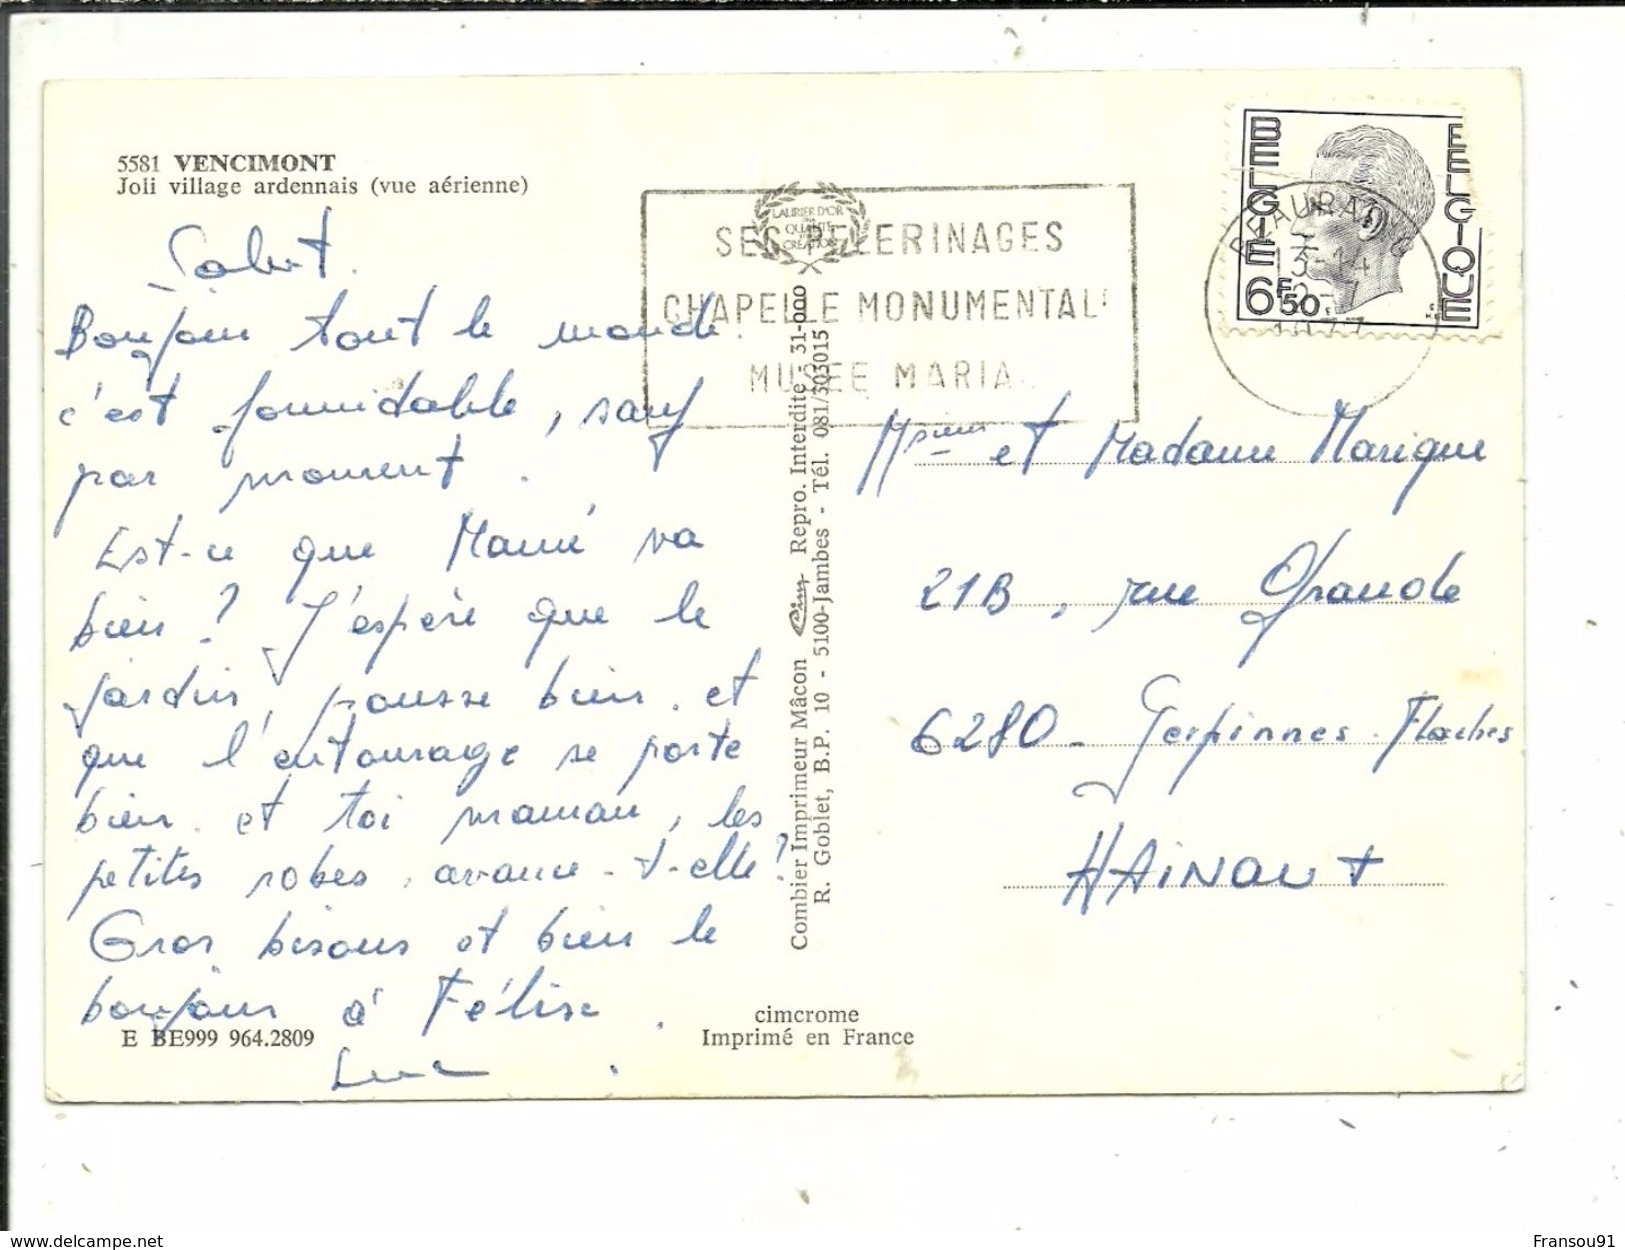 5581 VENCIMONT
Joli village ardennais (vue aérienne)
Salut.
Bonjour tout le monde.
c'est formidable, sauf
par moment.
Est-ce que Mamie va
bien ? J'espère que le
jardin, pousse bien. et
que l'entourage se porte
bien. et toi maman, les
petites robes, avance-t-elle ?
Gros bisous et bien le
bonjour à Félise.
Luc
E BE999 964.2809
LAURIER D'OR
QUALITE
CREATION
SES PELERINAGES
CHAPELLE MONUMENTALE
MUSEE MARIA
Combier Imprimeur Mâcon Cim Repro. Interdite - 31-000
R. Goblet, B.P. 10 - 5100-Jambes - Tél. 081/303015
cimcrome
Imprimé en France
BELGIE BELGIQUE
6F50
BEAURAING
13-14
1977
Msieur et Madame Marique
21B, rue Grande
6280 - Gerpinnes-Flaches
HAINAUT
www.delcampe.net
Fransou91